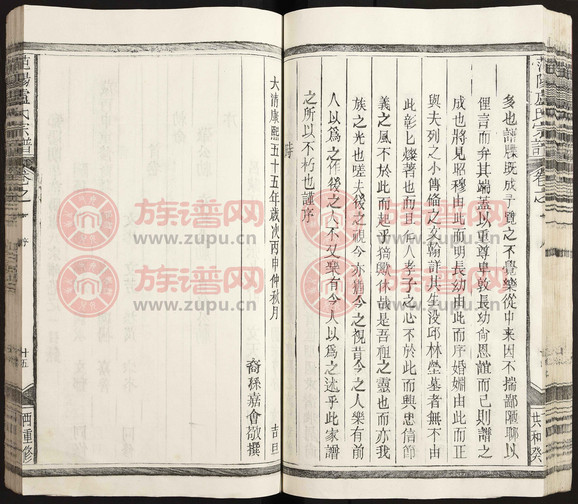 多也譜牒既成予覽之不覺樂從中来因不揣鄙陋聊以
俚言而弁其端蓋以重尊卑敦長幼尙恩誼而已則譜之
成也將見昭穆由此而明長幼由此而序婚姻由此而正
與夫列之小傳脩之文翰詳其生没邱林塋墓者無不由
此彰匕燦著也而且仁人孝子之心不於此而興忠信節
義之風不於此而起乎猗歟休哉是吾祖之靈也而亦我
族之光也嗟夫後之視今亦猶今之視昔今之人樂有前
人以為之作後之人不又樂有今人以為之述乎此家譜
之所以不朽也謹序
時
大清康熙五十五年歲次丙申仲秋月
吉旦
裔孫嘉會敬撰
范陽盧氏宗譜
卷之一
序
十五
酉重修
共和癸
族谱网
www.zupu.cn
族谱网
www.zupu.cn
族谱网
www.zupu.cn
族谱网
www.zupu.cn